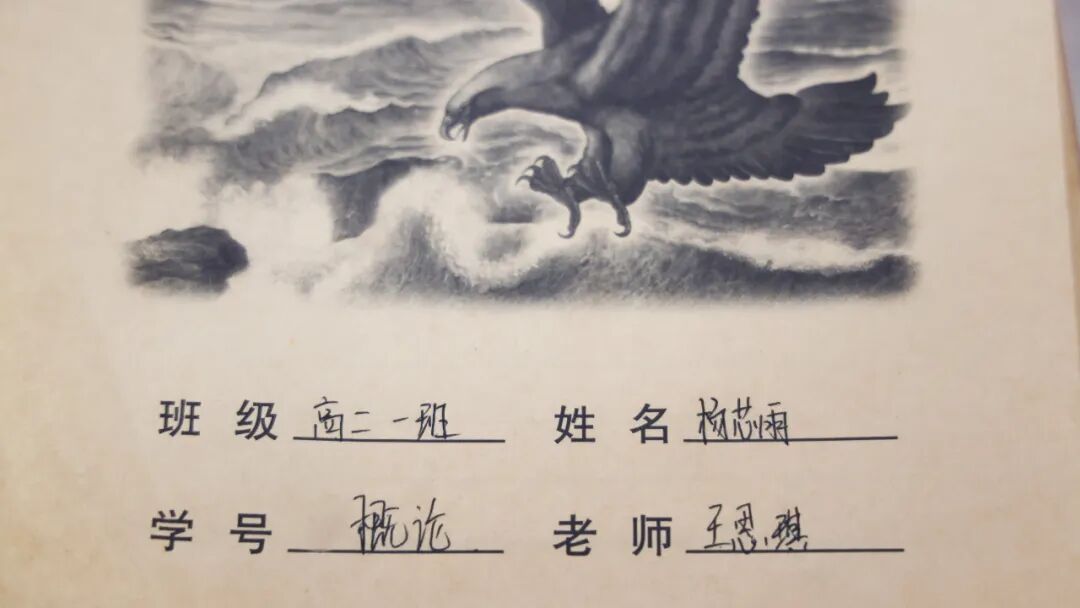 班 级 高二一班 姓 名 杨芯雨
学 号 概论 老 师 王恩琪